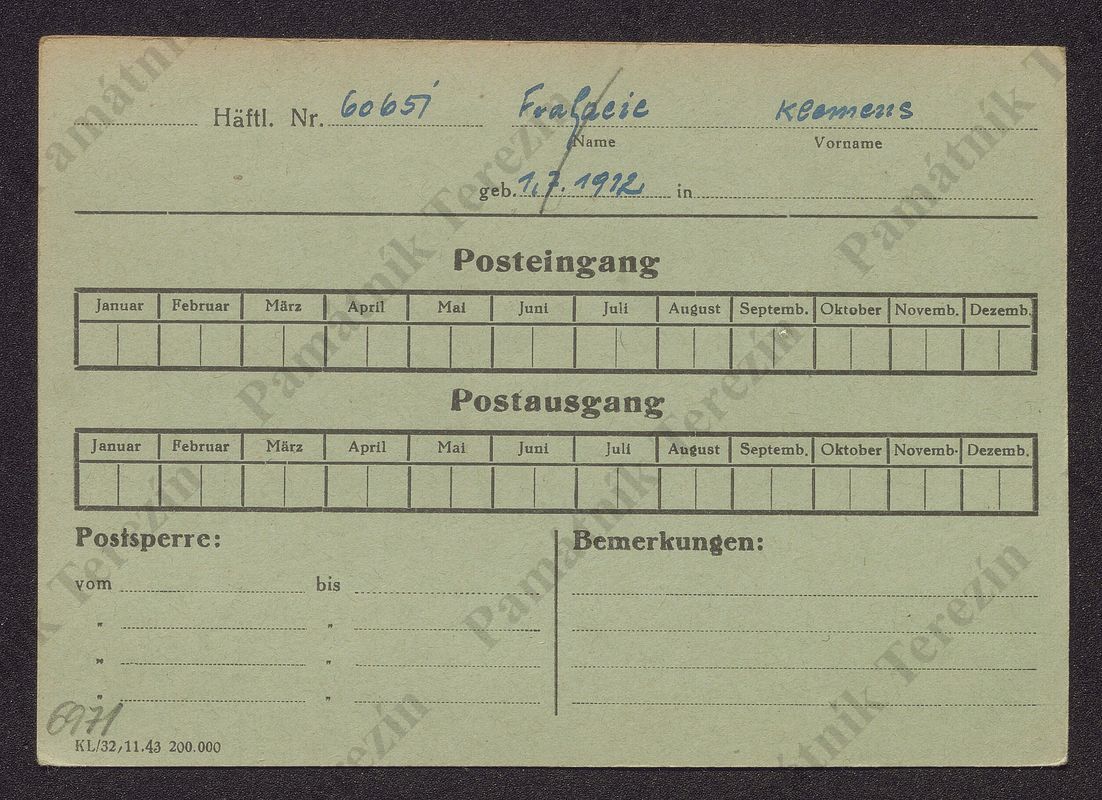 Häftl. Nr. 60651 Klemens
Name Vorname
geb. 1.7.1912 in
Posteingang
Januar Februar März April Mai Juni Juli August Septemb. Oktober Novemb. Dezemb.
Postausgang
Januar Februar März April Mai Juni Juli August Septemb. Oktober Novemb. Dezemb.
Postsperre: Bemerkungen:
vom bis
" "
" "
" "
6971
KL/32,11.43 200.000
Památník Terezín